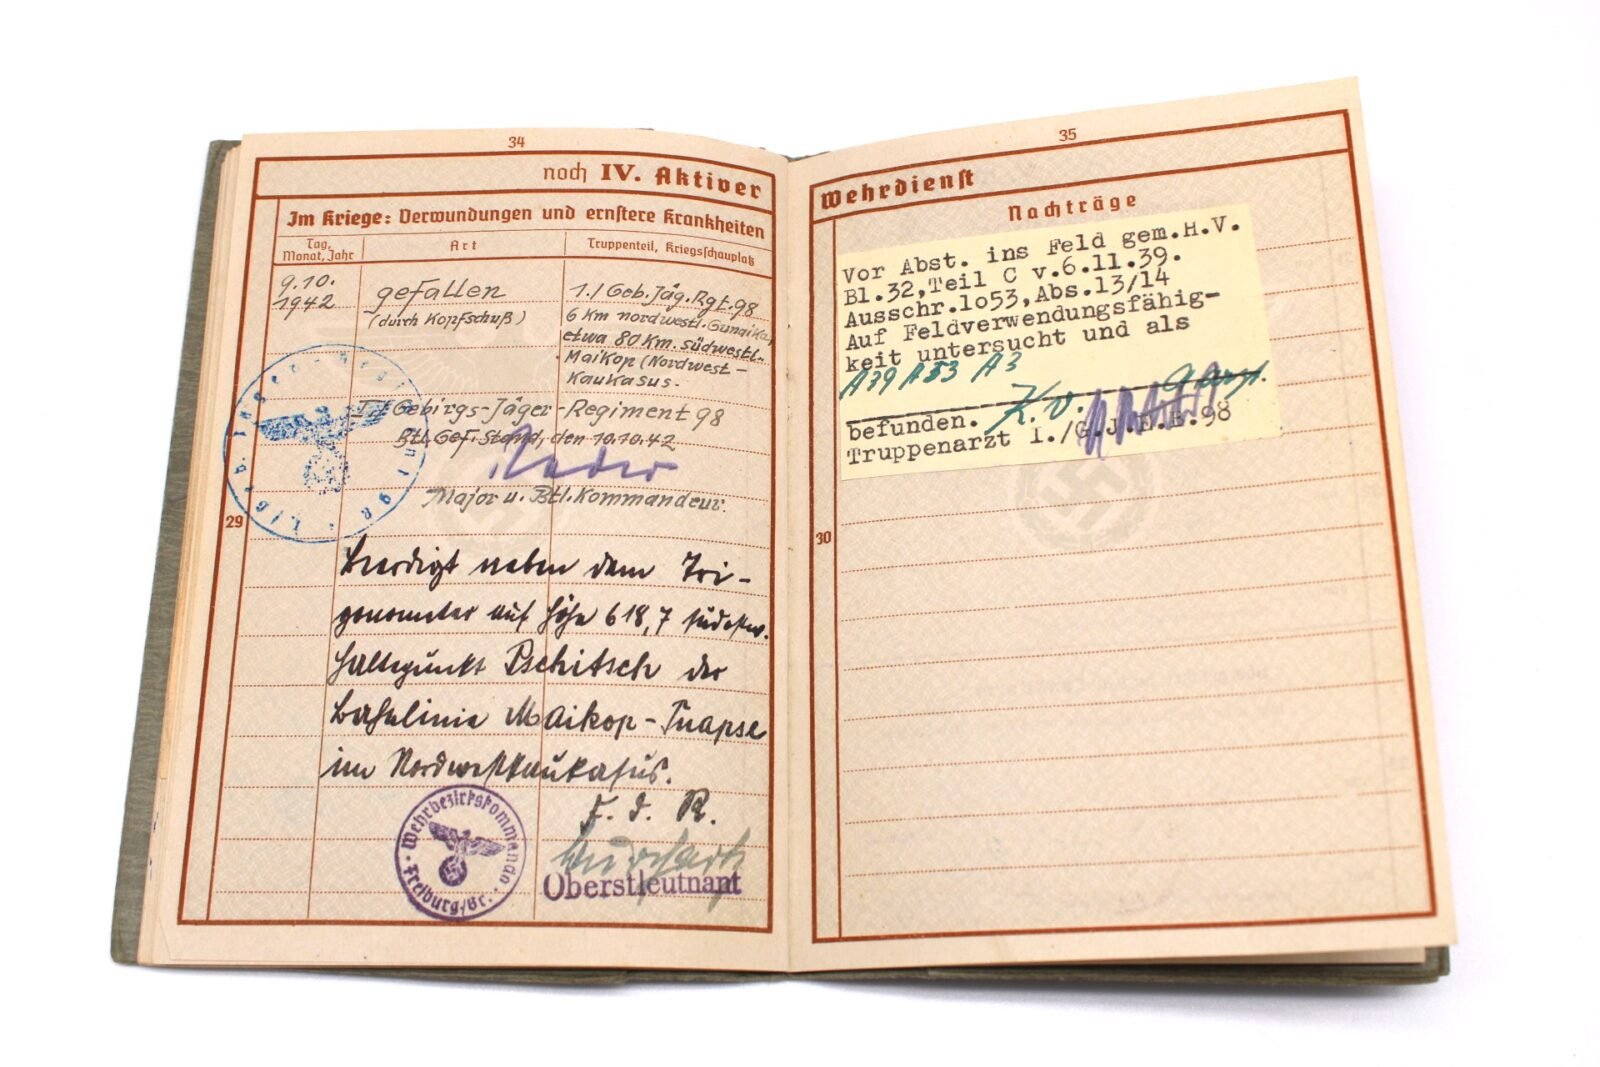 34
noch IV. Aktiver
Im Kriege: Verwundungen und ernstere Krankheiten
Tag, Monat, Jahr
Art
Truppenteil, Kriegsschauplatz
9.10.
1942
gefallen
(durch Kopfschuß)
1./Geb.Jäg.Rgt.98
6 Km nordwestl. Gunaika,
etwa 80 Km. südwestl.
Maikop (Nordwest-
Kaukasus.
I./Gebirgs-Jäger-Regiment 98
Btl. Gef. Stand, den 10.10.42
Major u. Btl. Kommandeur.
29
Beerdigt neben dem Tri-
gonometer auf Höhe 618,7 südostw.
Haltepunkt Pschitsch der
Bahnlinie Maikop-Tuapse
im Nordwestkaukasus.
F. d. R.
Wehrbezirkskommando
Freiburg/Br.
Oberstleutnant
35
Wehrdienst
Nachträge
Vor Abst. ins Feld gem.H.V.
Bl.32,Teil C v.6.11.39.
Ausschr.1o53,Abs.13/14
Auf Feldverwendungsfähig-
keit untersucht und als
A39 A53 A3
befunden. K.v.
Truppenarzt I./G.J.E.R.98
30